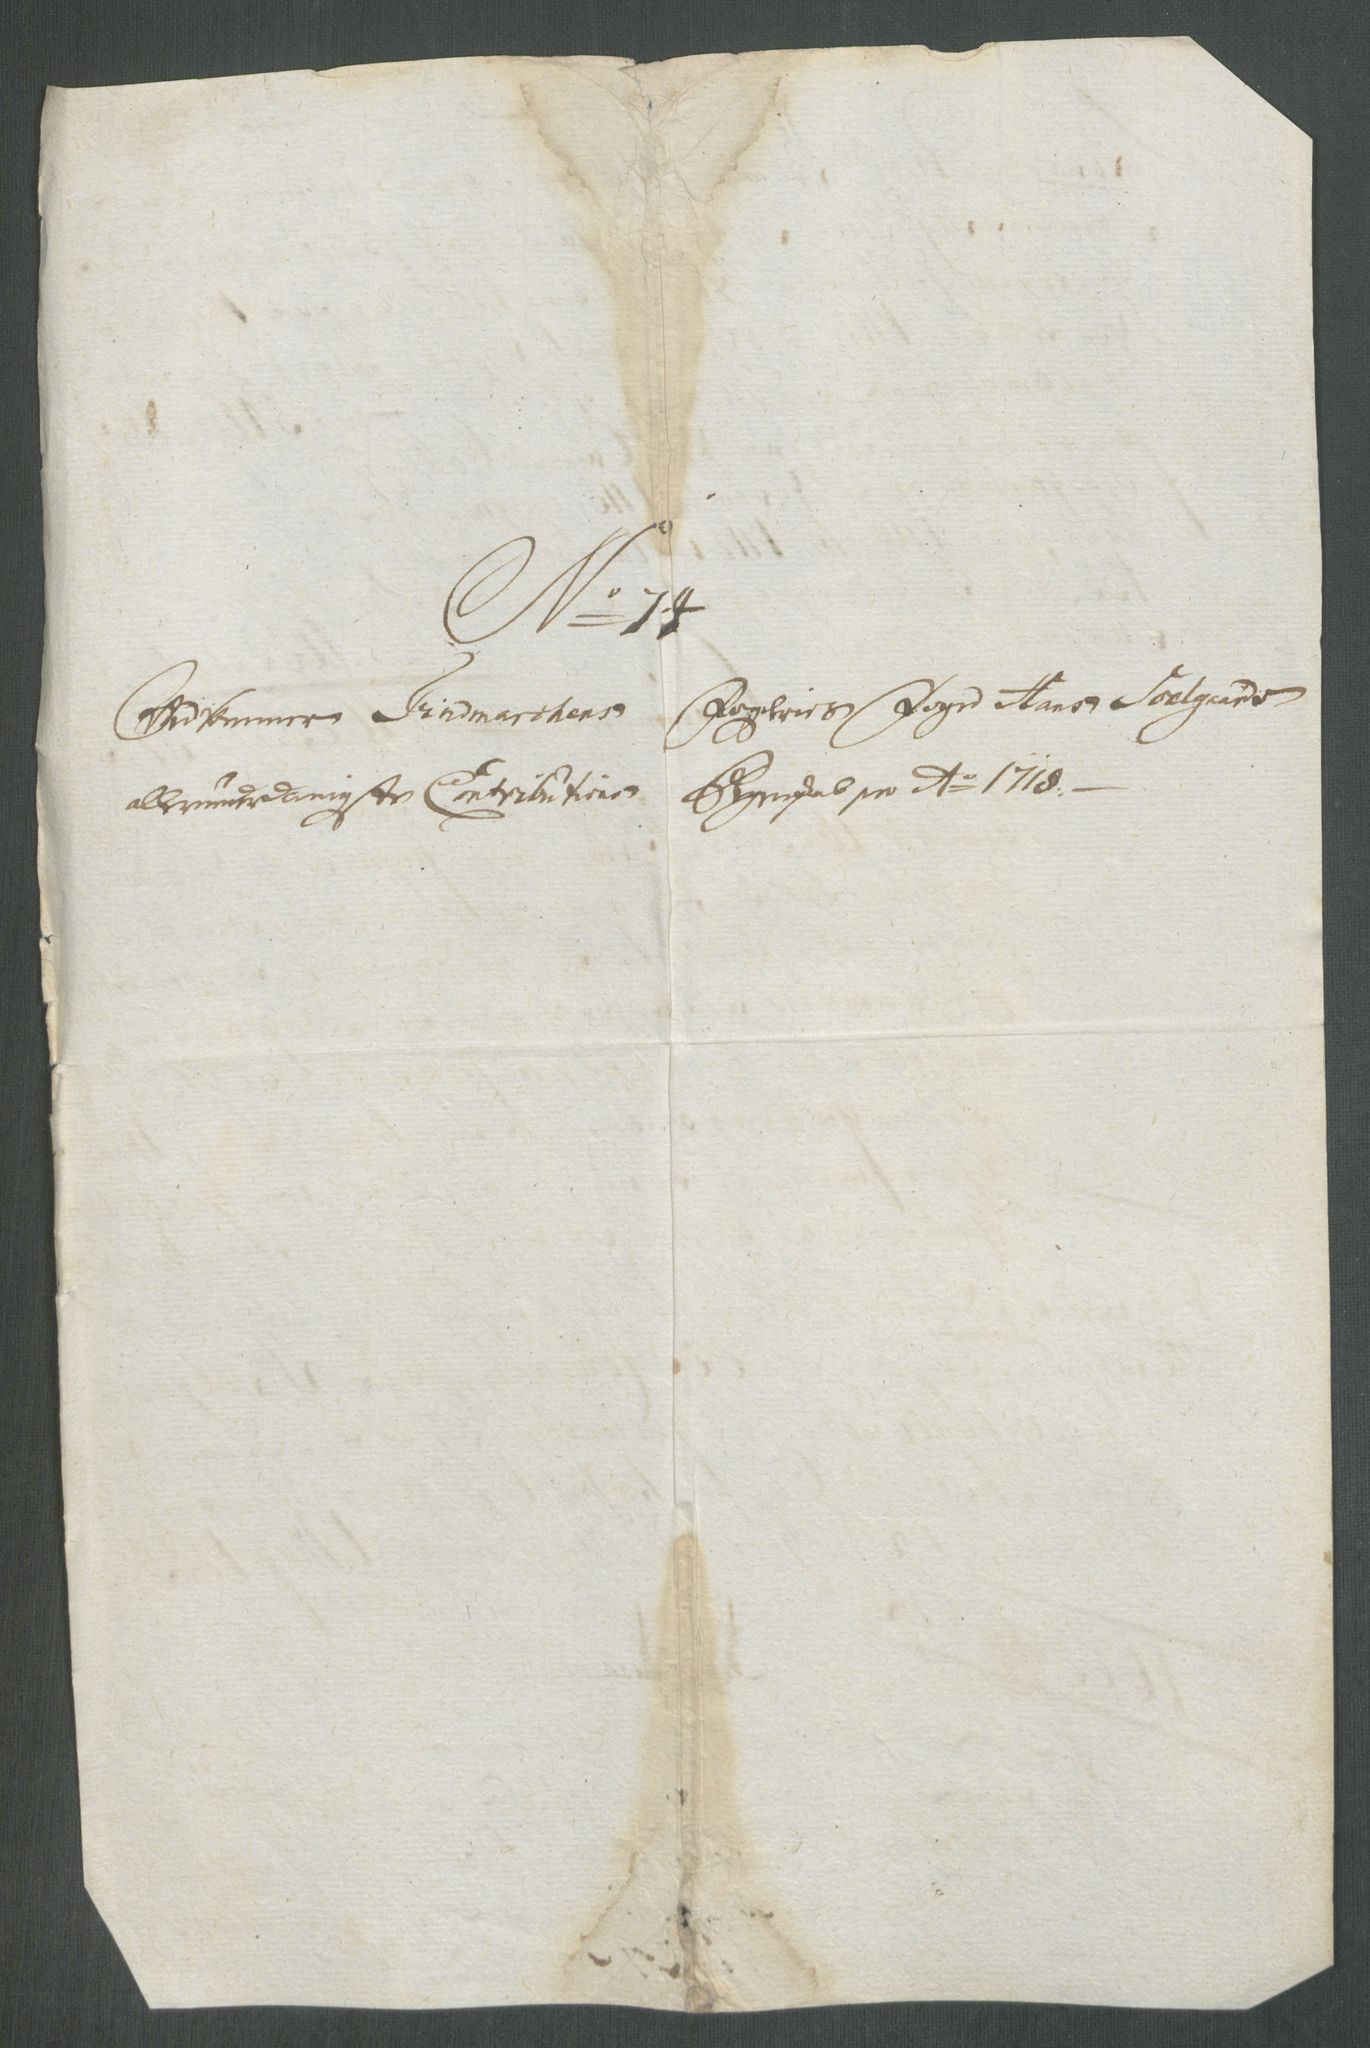 No 74
Findmarchens Fogderies Fogd Hans Soelgaards
allerunderdanigste Contributions Regnskab pro Ao 1718.